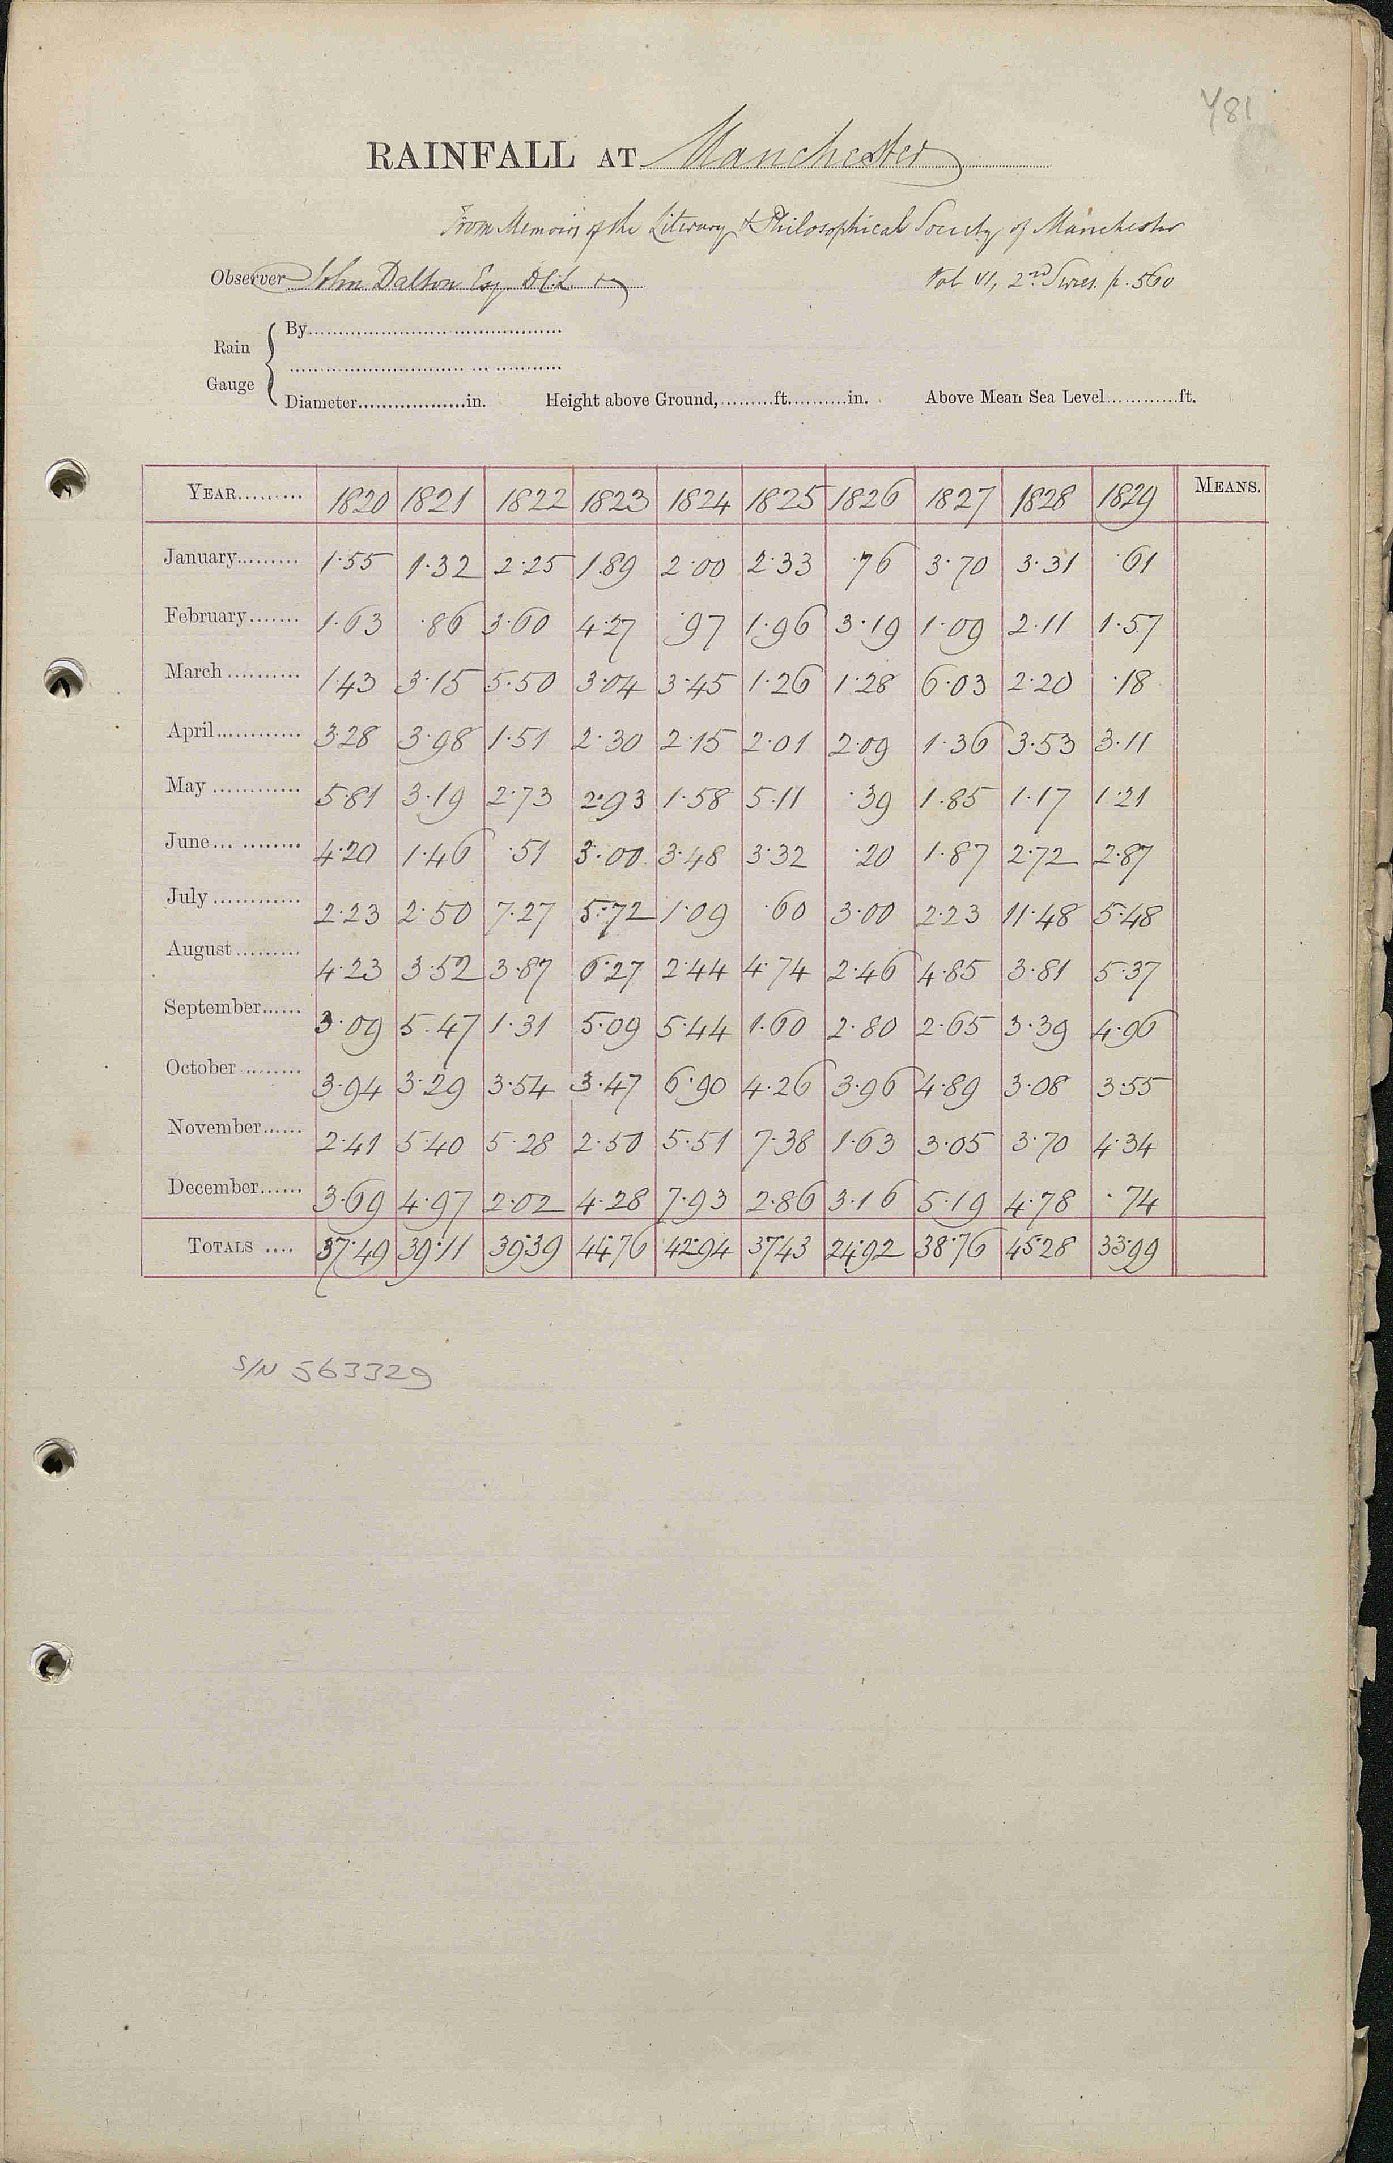 Y81
RAINFALL AT Manchester
From Memoirs of the Literary & Philosophical Society of Manchester
Observer John Dalton Esq D.C.L.
Vol VI, 2nd Series. p. 560
By
Rain
Gauge
Diameter in. Height above Ground, ft. in. Above Mean Sea Level ft.
YEAR 1820 1821 1822 1823 1824 1825 1826 1827 1828 1829 MEANS.
January 1.55 1.32 2.25 1.89 2.00 2.33 .76 3.70 3.31 .61
February 1.63 .86 3.60 4.27 .97 1.96 3.19 1.09 2.11 1.57
March 1.43 3.15 5.50 3.04 3.45 1.26 1.28 6.03 2.20 .18
April 3.28 3.98 1.51 2.30 2.15 2.01 2.09 1.36 3.53 3.11
May 5.81 3.19 2.73 2.93 1.58 5.11 .39 1.85 1.17 1.21
June 4.20 1.46 .51 3.00 3.48 3.32 .20 1.87 2.72 2.87
July 2.23 2.50 7.27 5.72 1.09 .60 3.00 2.23 11.48 5.48
August 4.23 3.52 3.87 6.27 2.44 4.74 2.46 4.85 3.81 5.37
September 3.09 5.47 1.31 5.09 5.44 1.60 2.80 2.65 3.39 4.96
October 3.94 3.29 3.54 3.47 6.90 4.26 3.96 4.89 3.08 3.55
November 2.41 5.40 5.28 2.50 5.51 7.38 1.63 3.05 3.70 4.34
December 3.69 4.97 2.02 4.28 7.93 2.86 3.16 5.19 4.78 .74
TOTALS 37.49 39.11 39.39 44.76 42.94 37.43 24.92 38.76 45.28 33.99
S/N 563329